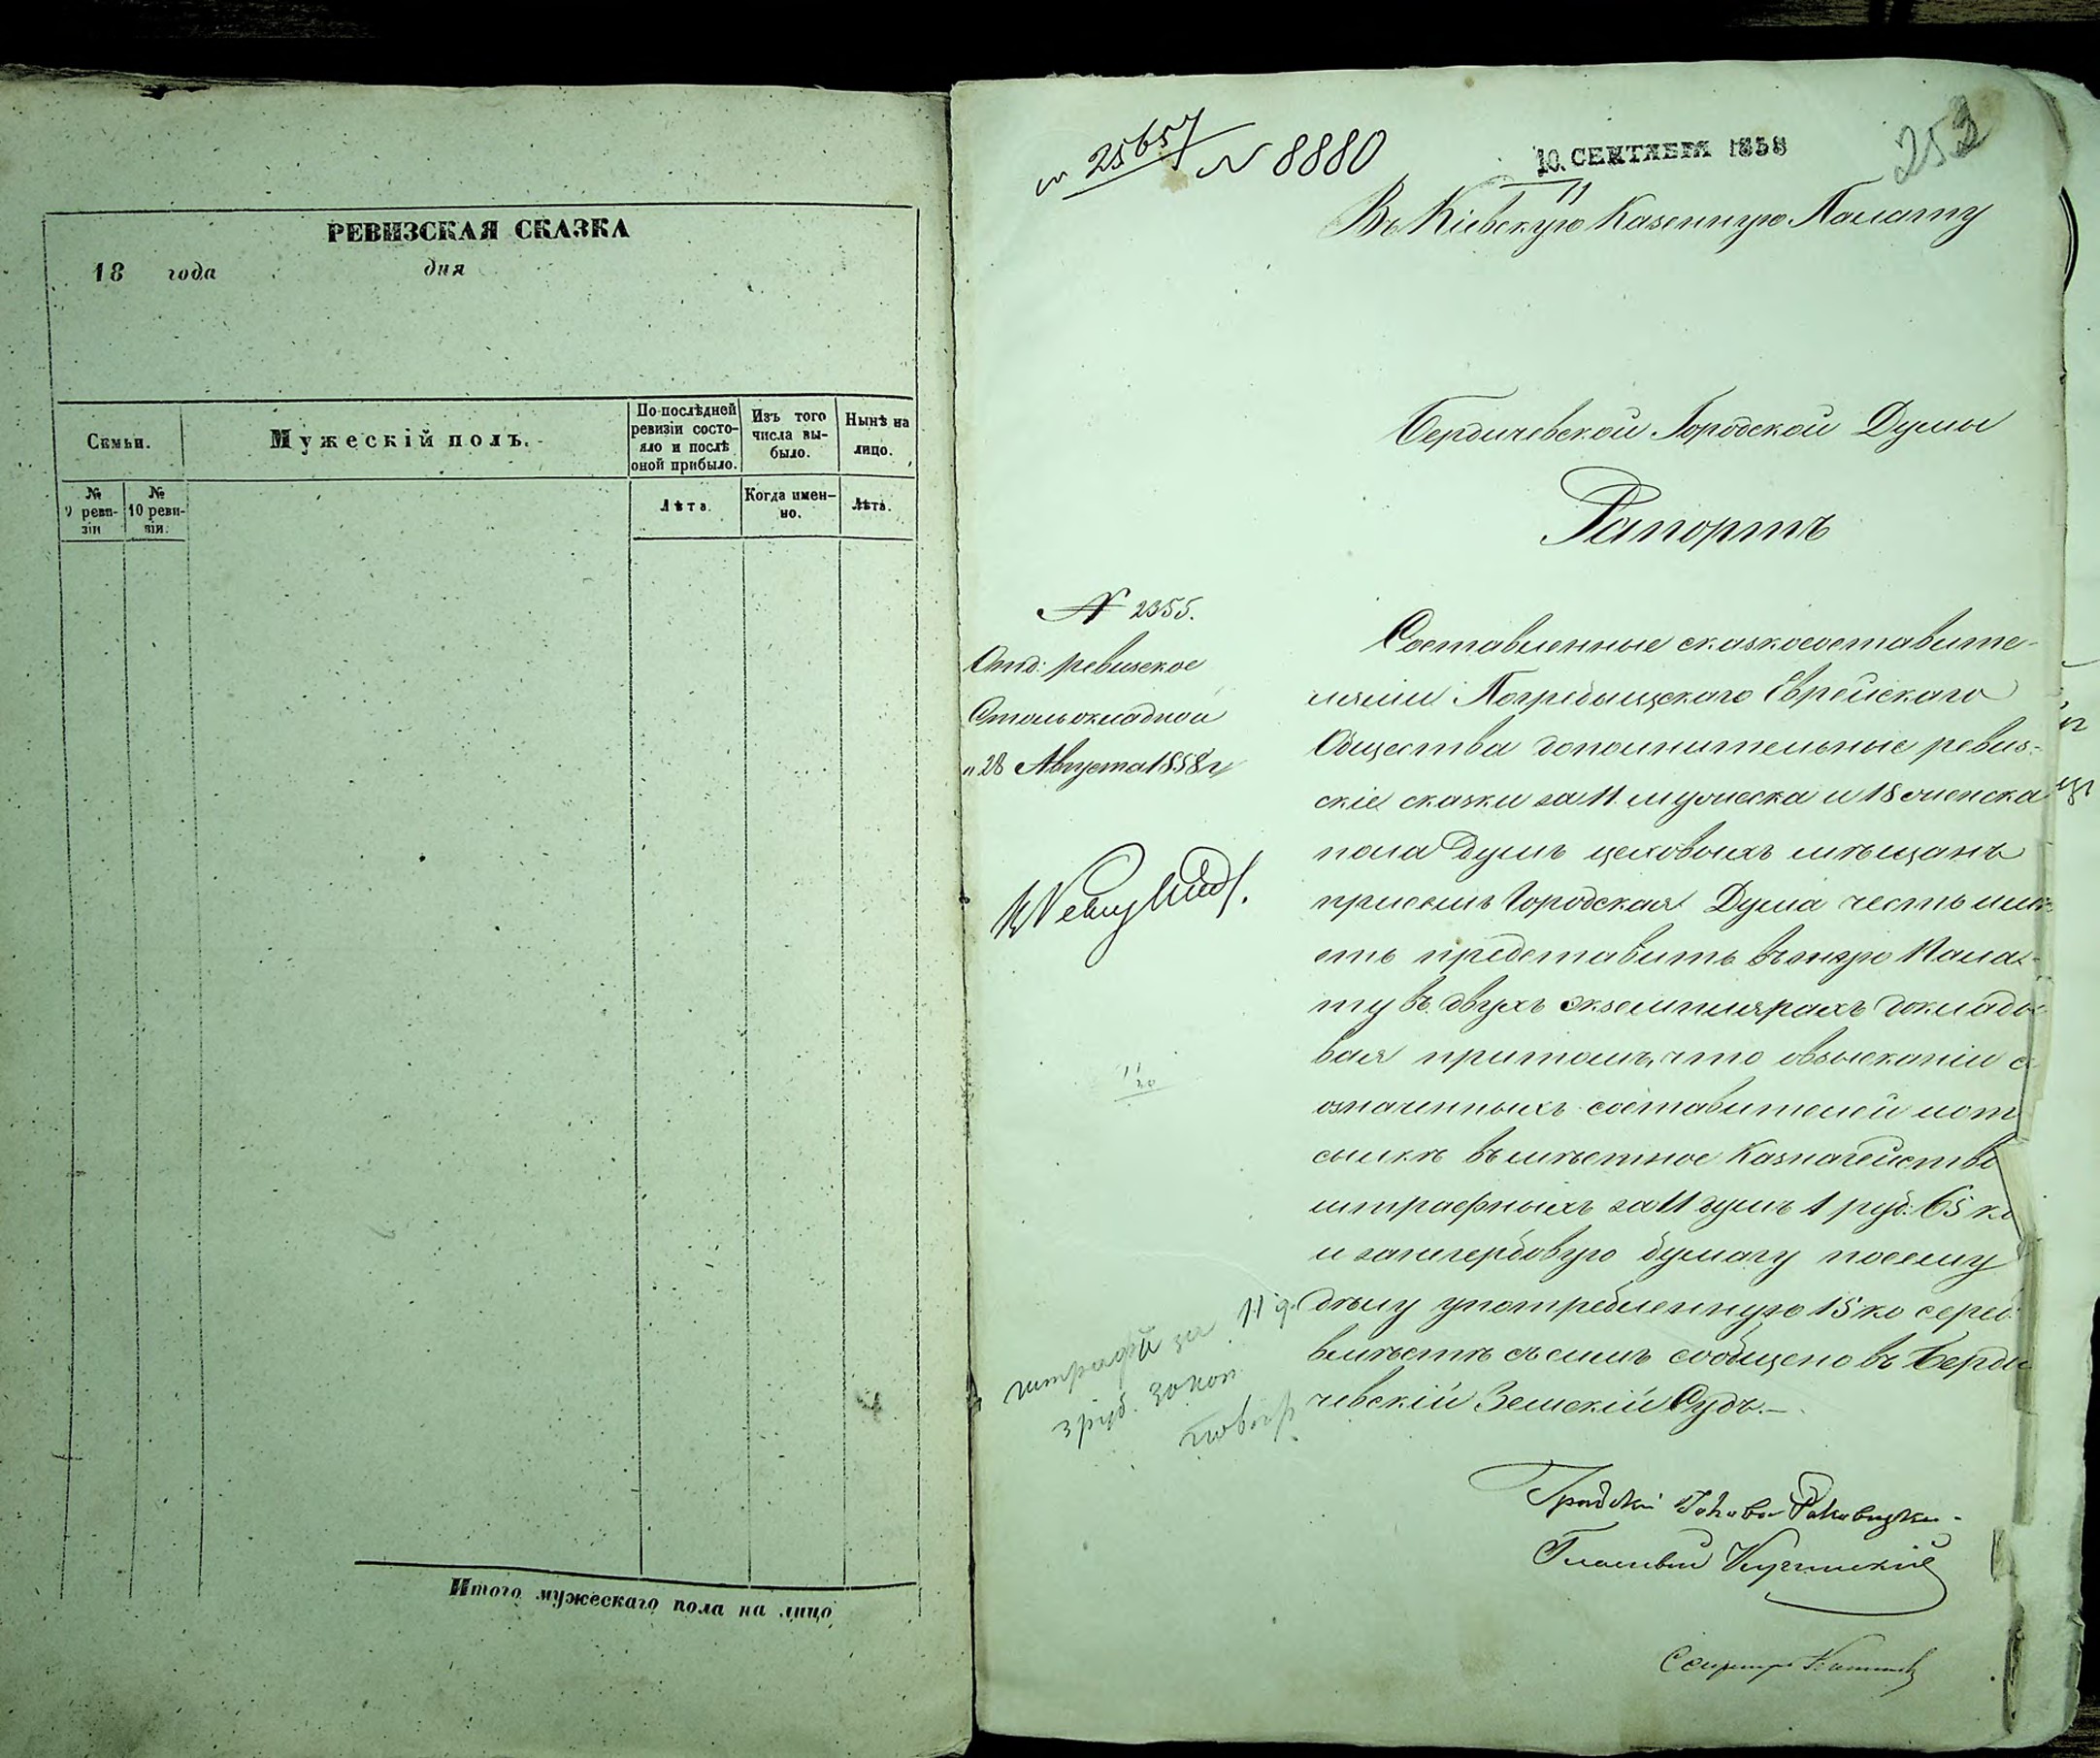 РЕВИЗСКАЯ СКАЗКА
18 года дня
Семьи.
Мужескій полъ.
По послѣдней ревизіи состояло и послѣ оной прибыло.
Изъ того числа выбыло.
Нынѣ на лицо.
№ 9 ревизіи
№ 10 ревизіи.
Лѣта
Когда именно.
Лѣта.
Итого мужескаго пола на лицо
25657
N 8880
10. СЕНТЯБРЯ 1858
253
Въ Кіевскую Казенную Палату
Бердичевской Городской Думы
Рапортъ
N 2355.
Отд: ревизское
Столъ окладной
"28 Августа 1858 г
Составленные сказкосоставите-
лями Погребыщскаго Еврейскаго
Общества дополнительные ревиз-
скіе сказки за 11 мужеска и 18 женска
пола душъ цеховыхъ мѣщанъ
присемъ Городская Дума честь имѣ-
етъ представить въ оную Пала-
ту въ двухъ экземплярахъ доклады-
вая притомъ, что овзысканіи с
означенныхъ составителей иот
сылкѣ вмѣстное Казначейство
штрафныхъ за 11 душъ 1 руб. 65 ко
и загербовую бумагу посему
дѣлу употребленную 15 ко сереб.
вмѣстѣ съ симъ сообщено въ Берди
чевскій Земскій Судъ.—
11
20
штрафа за 11 д.
3 руб. 30 коп
Градскій Голова
Гласный
Секретарь